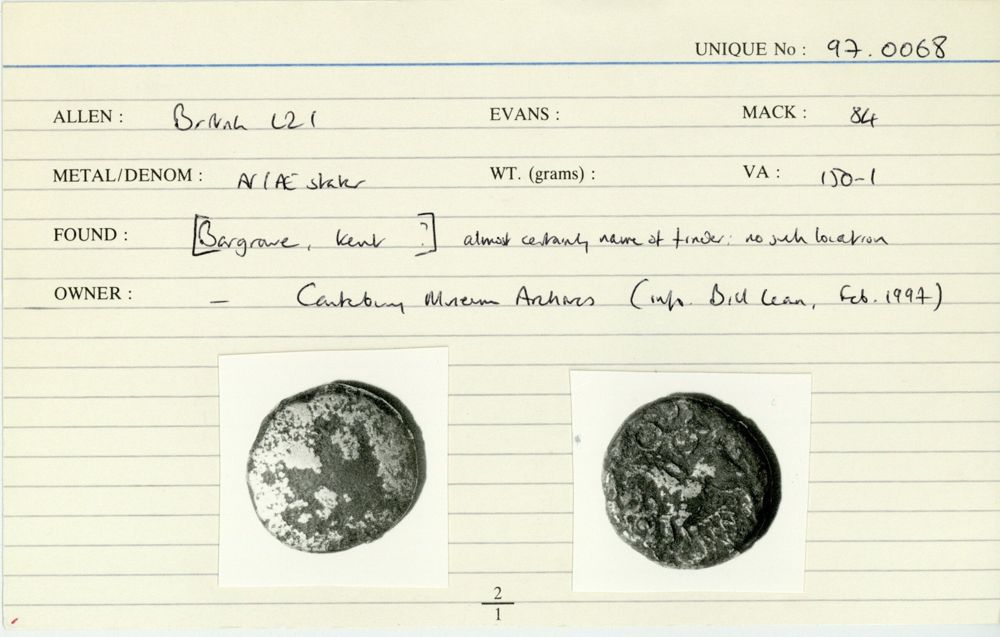 UNIQUE No : 97.0068
ALLEN : British L21 EVANS : MACK : 84
METAL/DENOM : AV/AE stater WT. (grams) : VA : 150-1
FOUND : [Bargrave, Kent ?] almost certainly name of finder: no such location
OWNER : — Canterbury Museum Archives (info. Bill Lean, Feb. 1997)
2
1